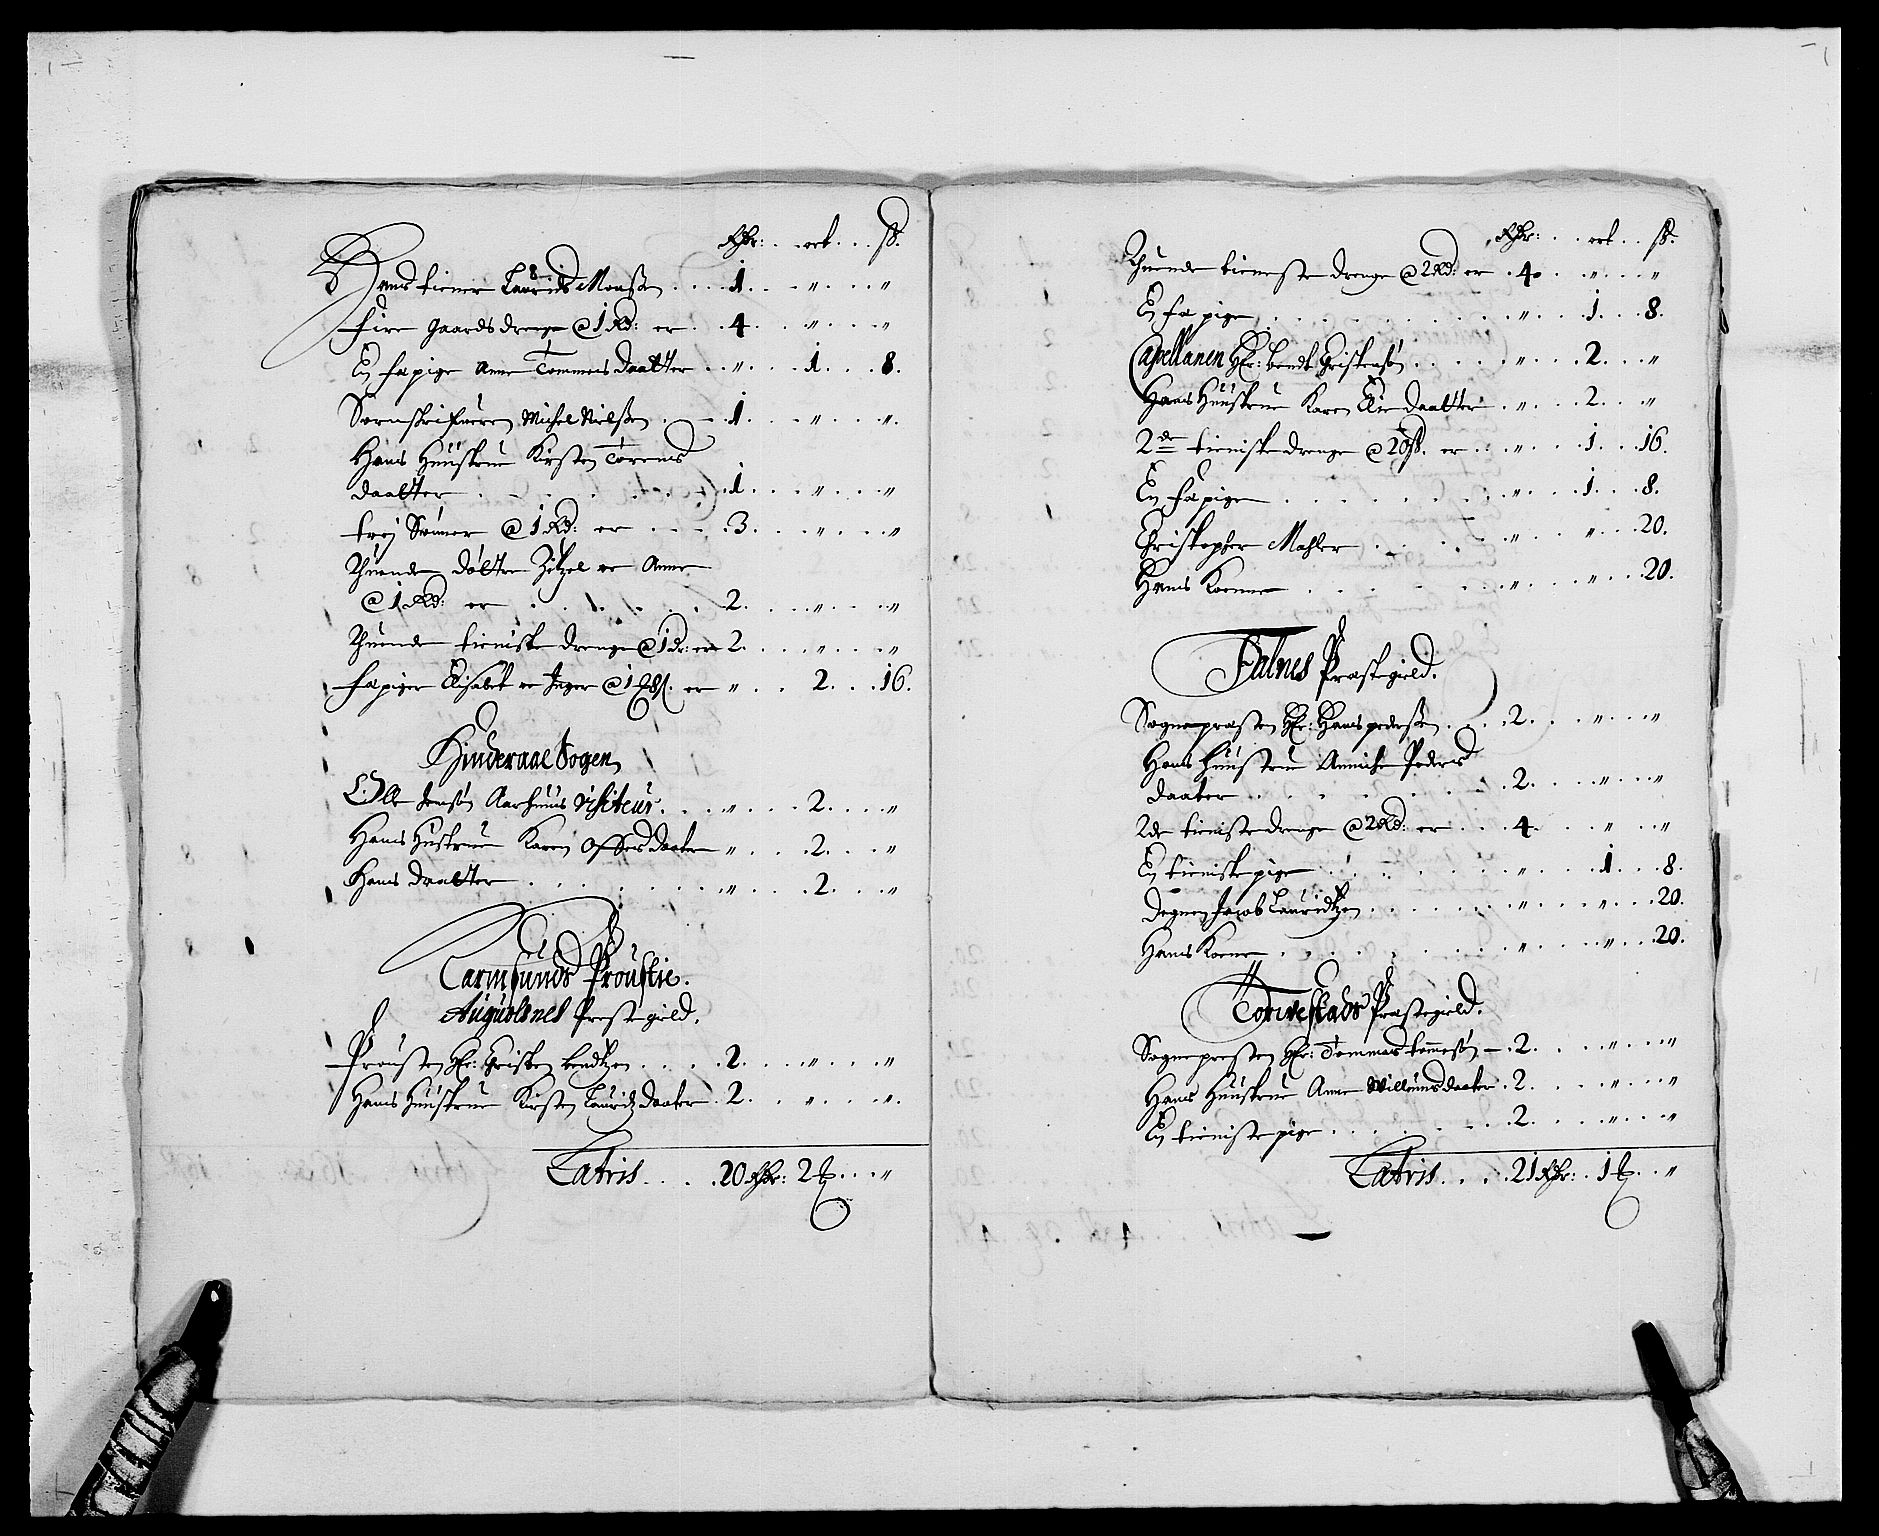 Rdr: . . ort . . . ß.
Hans tiener Laurids Monßen . . . . 1 . . . " . . . "
Fire gaards drenge @ 1 Rd: er . . 4 . . . " . . . "
En fæpige Anne Tommeis daatter . . " . . . 1 . . . 8.
Sornskrifueren Michel Nielßen . . . 1 . . . " . . . ".
Hans Huustrue Kirsten Torens
daatter . . . . . . . 1 . . . " . . . "
trej Sønner @ 1 Rd: er . . . . 3 . . . " . . . "
Thuende døttre Zitzel oc Anne
@ 1 Rd: er . . . . . . 2. . . . " . . . "
Thuende tieniste drenge @ 1 dr: er 2. . . . " . . . "
Fæpiger Elisabet oc Inger @ 1 8 ß. er " . . 2. . . 16.
Hinderaae Sogen
Olle Jensøn Aarhuus Visiteur. . . . " . . . 2. . . "
Hans Hustrue Karen Offers daater " . . . 2. . . "
Hans daatter . . . . . . . " . . . 2. . . "
Carmsunds Proustie.
Augvolsnes Prestegield.
Prousten Hr: Christen bendtzen . . . . 2. . . " . . . "
Hans Huustrue Kirsten Lauridz daater . 2. . . " . . . ".
Latris. . . . 20 Rdr: 2 . . . "
Rdr: . . . ort . . ß.
Thuende tieneste drenge @ 2 Rd: er . 4. . . " . . . "
En fæpige . . . . . . . . " . . . 1 . . . 8.
Capellanen Hr: bendt Christensøn . . . . . " . . . 2. . . "
Hans Huustrue Karen Elie daatter . " . . . 2. . . "
2de tieniste drenge @ 20 ß. er . . " . . . 1 . . . 16.
En fæpige . . . . . . . . " . . . 1 . . . 8.
Christopher Mahler . . . . . " . . . " . . . 20.
Hans Koenne . . . . . . " . . . " . . . 20.
Falnes Præstegield.
Sogne præsten Hr: Hans pederßen . . . . 2. . . " . . . "
Hans huustru Anniche Peders
daater . . . . . . . . 2. . . " . . . "
2de tieniste drenge @ 2 Rd: er . . . 4. . . " . . . "
En tieniste pige . . . . . . . " . . . 1 . . . 8.
Degnen Jacob Lauridtzen . . . . . . " . . . " . . . 20.
Hans Koene . . . . . . . . " . . . " . . . 20.
Torvestads Præstegield.
Sogne presten Hr: Tommas tommesøn . 2. . . " . . . "
Hans Huustrue Anne Willumsdaater . 2. . . " . . . "
En tieniste pige . . . . . . 2. . . " . . . "
Latris. . . . 21 Rdr: 1 . . . "